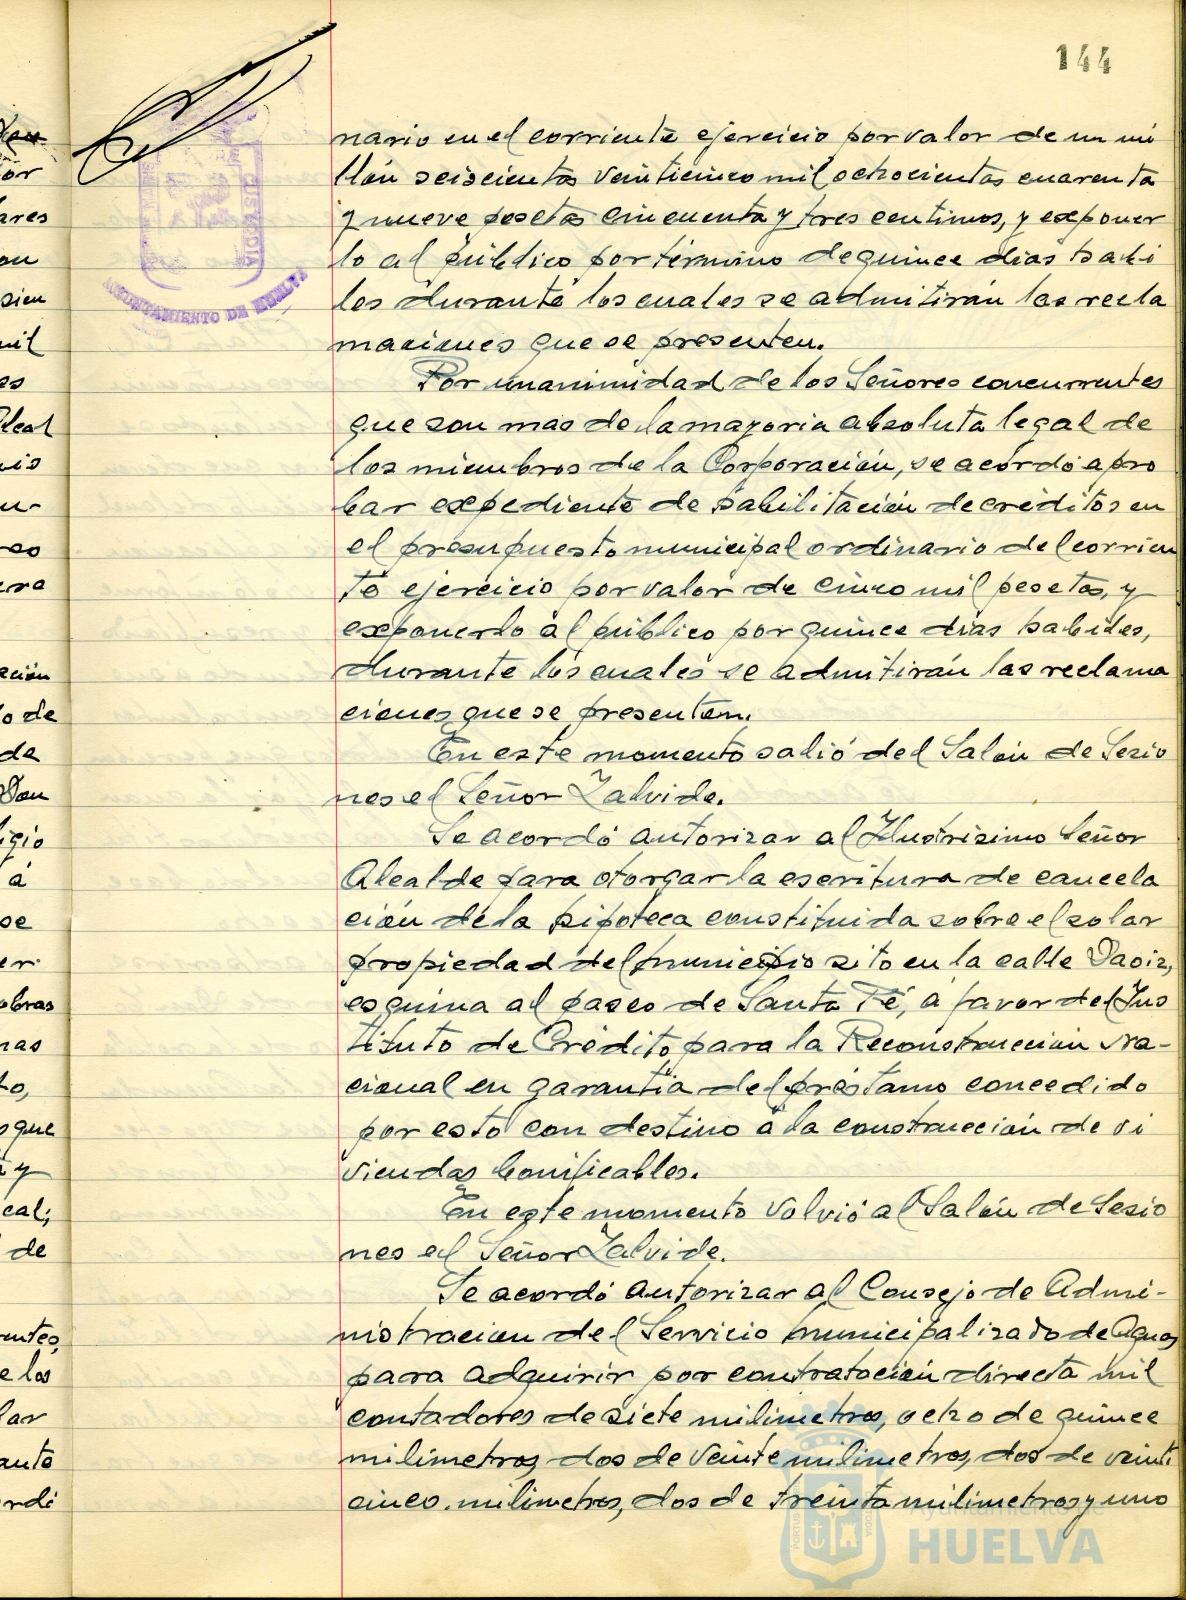 144
nario en el corriente ejercicio por valor de un mi
llón seiscientas veinticinco mil ochocientas cuarenta
y nueve pesetas cincuenta y tres centimos, y exponer
lo al público por término de quince dias habi
les durante los cuales se admitirán las recla
maciones que se presenten.
Por unanimidad de los Señores concurrentes
que son mas de la mayoria absoluta legal de
los miembros de la Corporación, se acordó apro
bar expediente de habilitación de créditos en
el presupuesto municipal ordinario del corrien
te ejercicio por valor de cinco mil pesetas, y
exponerlo al público por quince dias habiles,
durante los cuales se admitirán las reclama
ciones que se presentan.
En este momento salió del Salón de Sesio
nes el Señor Zalvide.
Se acordó autorizar al Ilustrisimo Señor
Alcalde para otorgar la escritura de cancela
ción de la hipoteca constituida sobre el solar
propiedad del municipio sito en la calle Daoiz,
esquina al paseo de Santa Fé, a favor del Ins
tituto de Crédito para la Reconstrucción Na-
cional en garantia del préstamo concedido
por esto con destino a la construcción de vi
viendas bonificables.
En este momento volvió al Salón de Sesio
nes el Señor Zalvide.
Se acordó autorizar al Consejo de Admi-
nistracion del Servicio municipalizado de Aguas
para adquirir por contratación directa mil
contadores de siete milimetros, ocho de quince
milimetros, dos de veinte milimetros, dos de veinti
cinco milimetros, dos de treinta milimetros y uno
AYUNTAMIENTO DE HUELVA
Ayuntamiento de
HUELVA